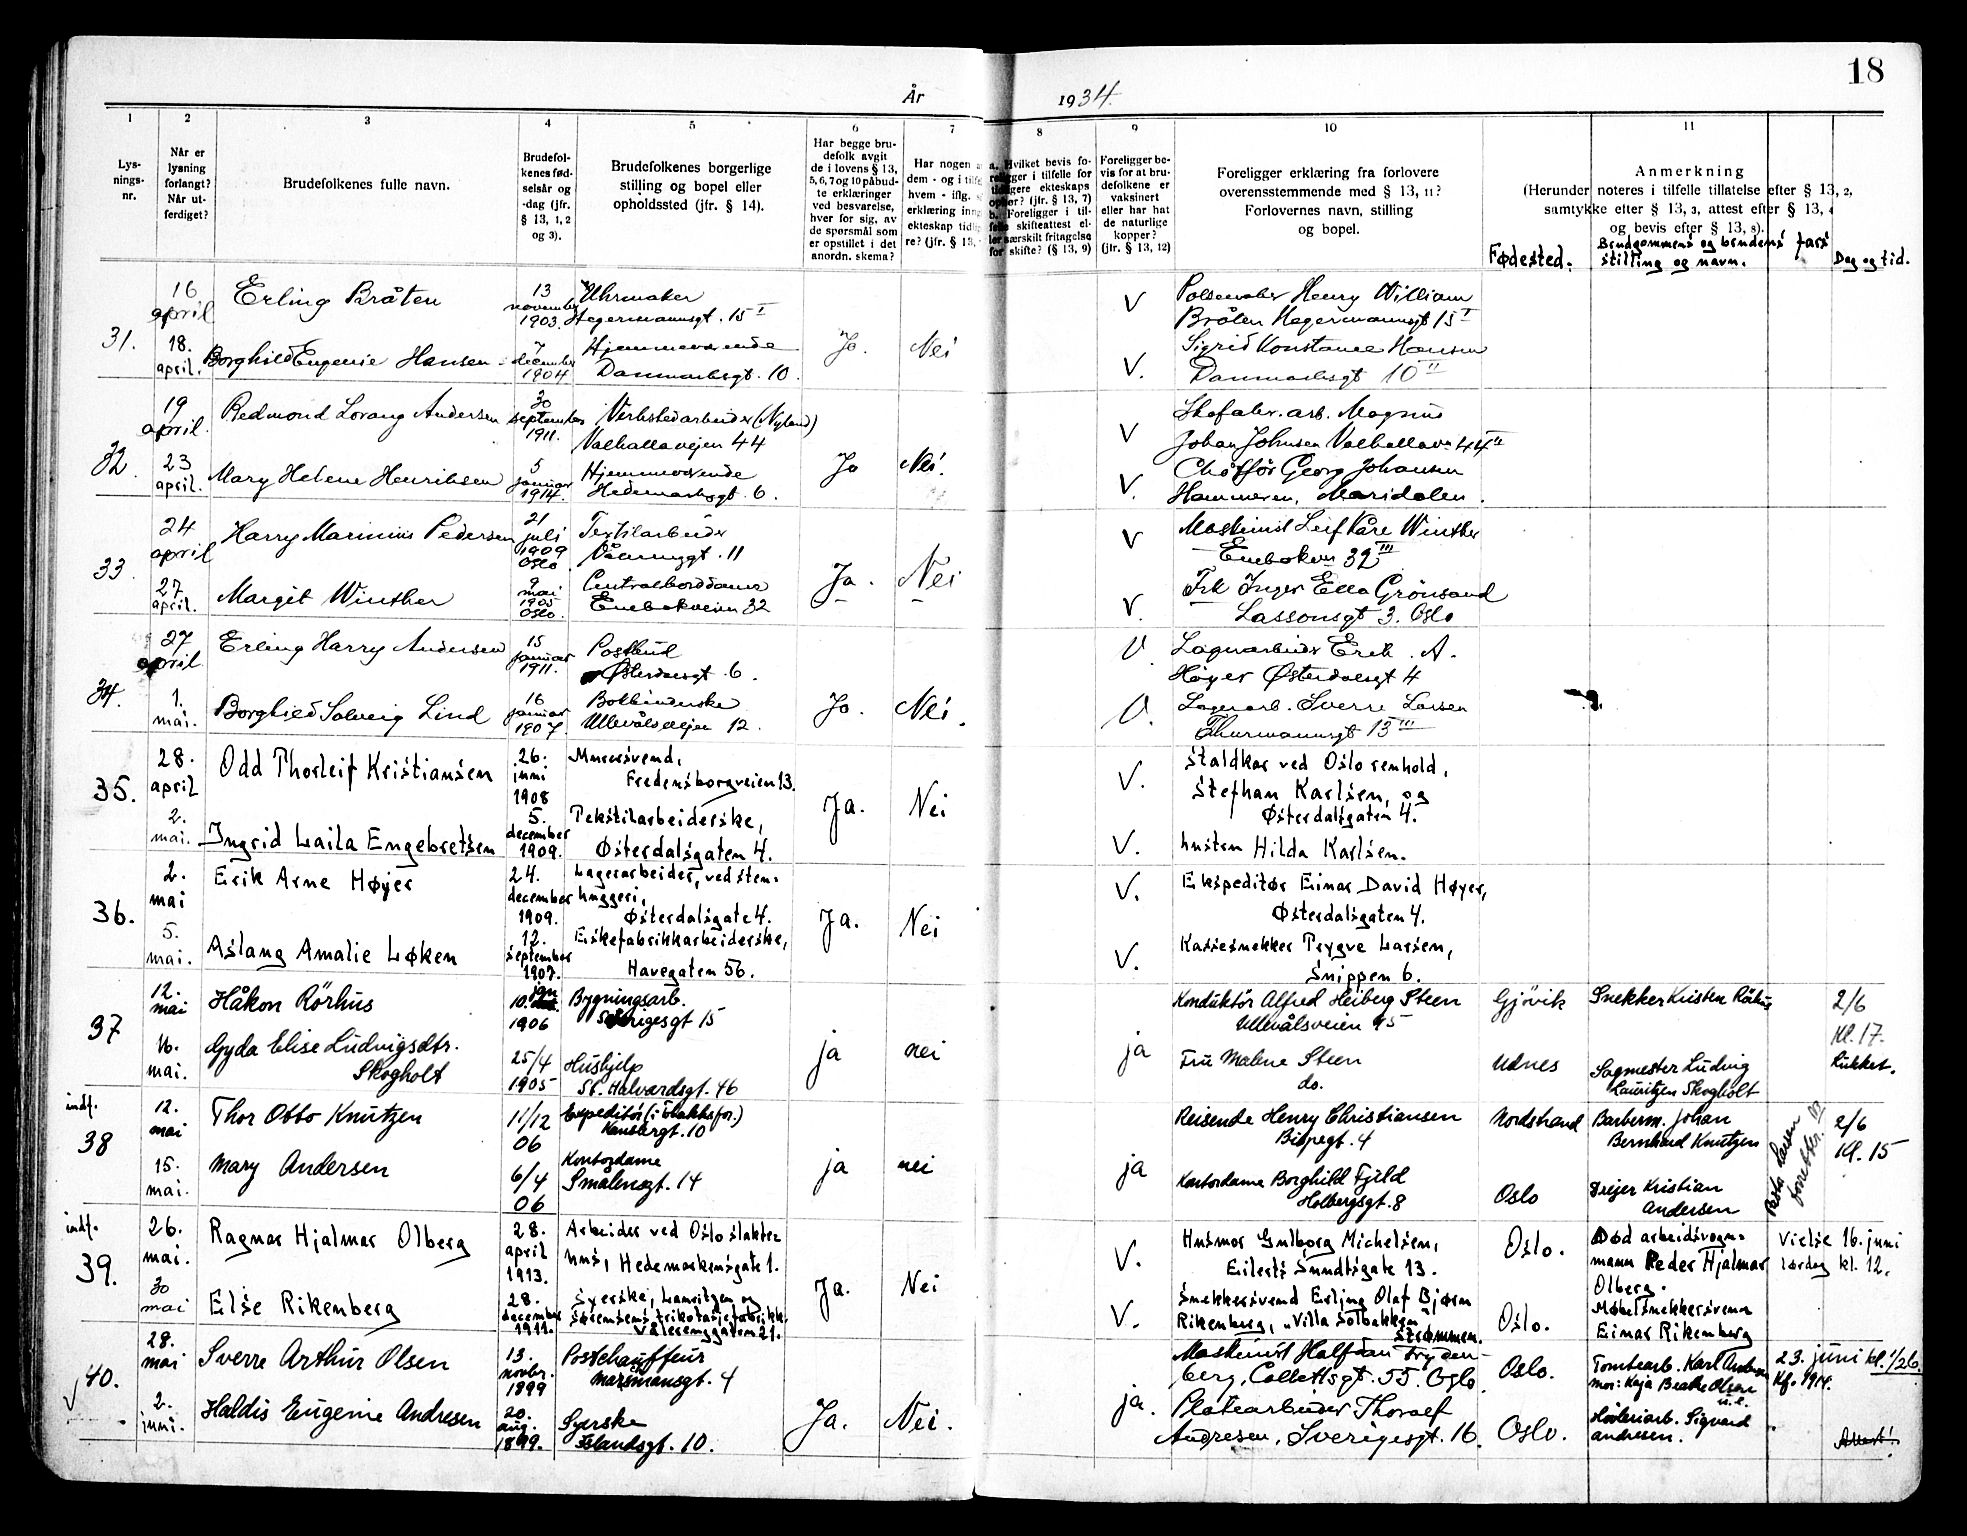 18
År 1934.
1 2 3 4 5 6 7 8 9 10 11
Lys-
nings-
nr.
Når er
lysning
forlangt?
Når ut-
ferdiget?
Brudefolkenes fulle navn.
Brudefol-
kenes fød-
selsår og
-dag (jfr.
§ 13, 1, 2
og 3).
Brudefolkenes borgerlige
stilling og bopel eller
opholdssted (jfr. § 14).
Har begge bru-
defolk avgit
de i lovens § 13,
5, 6, 7 og 10 påbud-
te erklæringer
ved besvarelse,
hver for sig, av
de spørsmål som
er opstillet i det
anordn. skema?
Har nogen
dem - og i tilf
hvem - iflg.
erklæring inng
ekteskap tidlig
re? (jfr. § 13,
a. Hvilket bevis fo-
religger i tilfelle for
tidligere ekteskaps
ophør? (jfr. § 13, 7)
b. Foreligger i til-
felle skifteattest el-
ler særskilt fritagelse
for skifte? (§ 13, 9)
Foreligger be-
vis for at bru-
defolkene er
vaksinert
eller har hat
de naturlige
kopper?
(jfr. § 13, 12)
Foreligger erklæring fra forlovere
overensstemmende med § 13, 11?
Forlovernes navn, stilling
og bopel.
Fødested.
Anmerkning
(Herunder noteres i tilfelle tillatelse efter § 13, 2,
samtykke efter § 13, 3, attest efter § 13, 4
og bevis efter § 13, 8).
Brudgommens og brudens fars
stilling og navn.
Dag og tid.
31.
16
april
18.
april.
Erling Bråten
13
november
1903.
Uhrmaker
Hegermannsgt. 15 I
Borghild Eugenie Hansen
7
december
1904
Hjemmeværende
Danmarksgt. 10.
Ja. Nei
V
Pølsemaker Henry William
Bråten Hegermannsgt 15 I
V.
Sigrid Konstance Hansen
Danmarksgt 10 II
32.
19
april.
23
april.
Redmond Lorang Andersen
30
september
1911.
Verkstedarbeider (Nyland)
Valhallaveien 44
Mary Helene Henriksen
5
januar
1914.
Hjemmeværende
Hedemarksgt. 6.
Ja Nei.
V
Skofabr. arb. Magnus
Johan Johnsen Valhallavn 44 II
V.
Chåffør Georg Johansen
Hammeren, Maridalen.
33
24
april
27
april.
Harry Marinius Pedersen
21
juli
1909
Oslo
Textilarbeider
Vålerenggt. 11
Margit Winther
9
mai
1905
Oslo.
Centralborddame
Enebakveien 32
Ja. Nei
V
Maskinist Leif Kåre Winther
Enebakvn 32 III
V.
Frk Inger Ella Grönsand
Lassonsgt 3. Oslo
34.
27
april
1.
mai.
Erling Harry Andersen
15
januar
1911.
Postbud
Østerdalsgt. 6.
Borghild Solveig Lind
16
januar
1907
Bokbinderske
Ullevålsveien 12.
Ja. Nei.
V.
Lagerarbeider Erik. A.
Høyer Østerdalsgt 4
V.
Lagerarb. Sverre Larsen
Thurmannsgt 13 III
35.
28.
april
2.
mai.
Odd Thorleif Kristiansen
26.
juni
1908
Murersvend,
Fredensborgveien 13.
Ingrid Laila Engebretsen
5.
december
1909.
Tekstilarbeiderske,
Østerdalsgaten 4.
Ja. Nei
V.
Staldkar ved Oslo renhold,
Stefhan Karlsen, og
Østerdalsgaten 4.
V.
hustru Hilda Karlsen.
36.
2.
mai
5.
mai.
Erik Arne Høyer
24.
december
1909.
Lagerarbeider, ved sten-
huggeri,
Østerdalsgate 4.
Aslaug Amalie Løken
12.
september
1907.
Eskefabrikkarbeiderske,
Havegaten 56.
Ja. Nei
V.
Ekspeditør Einar David Høyer,
Østerdalsgaten 4.
V.
Kassesnekker Trygve Larsen,
Snippen 6.
37
12.
mai
16.
mai.
Håkon Rörhus
10. jan
1906
Bygningsarb.
Sverigesgt 15
Gyda Elise Ludvigsdtr.
Skogholt
25/4
1905
Hushjelp
St. Halvardsgt. 46
ja nei ja
Konduktör Alfred Heiberg Steen
Ullevålsveien 95
Fru Malene Steen
do.
Gjövik
Udnes
Snekker Kristen Rörhus
Sagmester Ludvig
Lauritzen Skogholt
2/6
Kl. 17.
Lukket.
indf.
38
12.
mai
15.
mai.
Thor Otto Knutzen
11/12
06
Expeditör (i Flakksfor.)
Kanslergt. 10
Mary Andersen
6/4
06
Kontordame
Smålensgt. 14
ja nei ja
Reisende Henry Christiansen
Bispegt. 4
Kontordame Borghild Fjeld
Holbergsgt. 8
Nordstrand
Oslo
Barberm. Johan
Bernhard Knutzen
Drejer Kristian
Andersen
Pastor Larsen
forretter.
2/6
Kl. 15
indf.
39.
26.
mai.
30
mai
Ragnar Hjalmar Olberg
28.
april
1913.
Arbeider ved Oslo slakter-
hus, Hedemarkensgate 1.
Else Rikenberg
28.
december
1911.
Syerske, Lauritzen og
Sørensens trikotasjefabrikk
Vålerenggaten 21.
Ja. Nei
V.
Husmor Gulborg Michelsen,
Eilerts Sundtsgate 13.
V.
Snekkersvend Erling Olaf Bjørn
Rikenberg, "Villa Solbakken"
Strømmen.
Oslo.
Oslo.
Død arbeidsvogn-
mann Peder Hjalmar
Olberg.
Møbelsnekkersvenn
Einar Rikenberg
Vielse 16. juni
lørdag kl. 12.
V
40.
28.
mai
2.
juni.
Sverre Arthur Olsen
13.
novbr.
1899
Postchauffeur
Marsmansgt. 4
Haldis Eugenie Andresen
20.
aug.
1899.
Syerske
Islandsgt. 10.
Ja. Nei. ja.
Maskinist Halfdan Fryden-
berg, Collettsgt. 55. Oslo
Platearbeider Thoralf
Andresen, Sverigesgt. 16.
Oslo.
Oslo.
Tomtearb. Karl
mor: Kaja Beate Olsen
Sigvard
Andresen.
23. juni kl. 1/26.
Kf. 1914.
Attest!